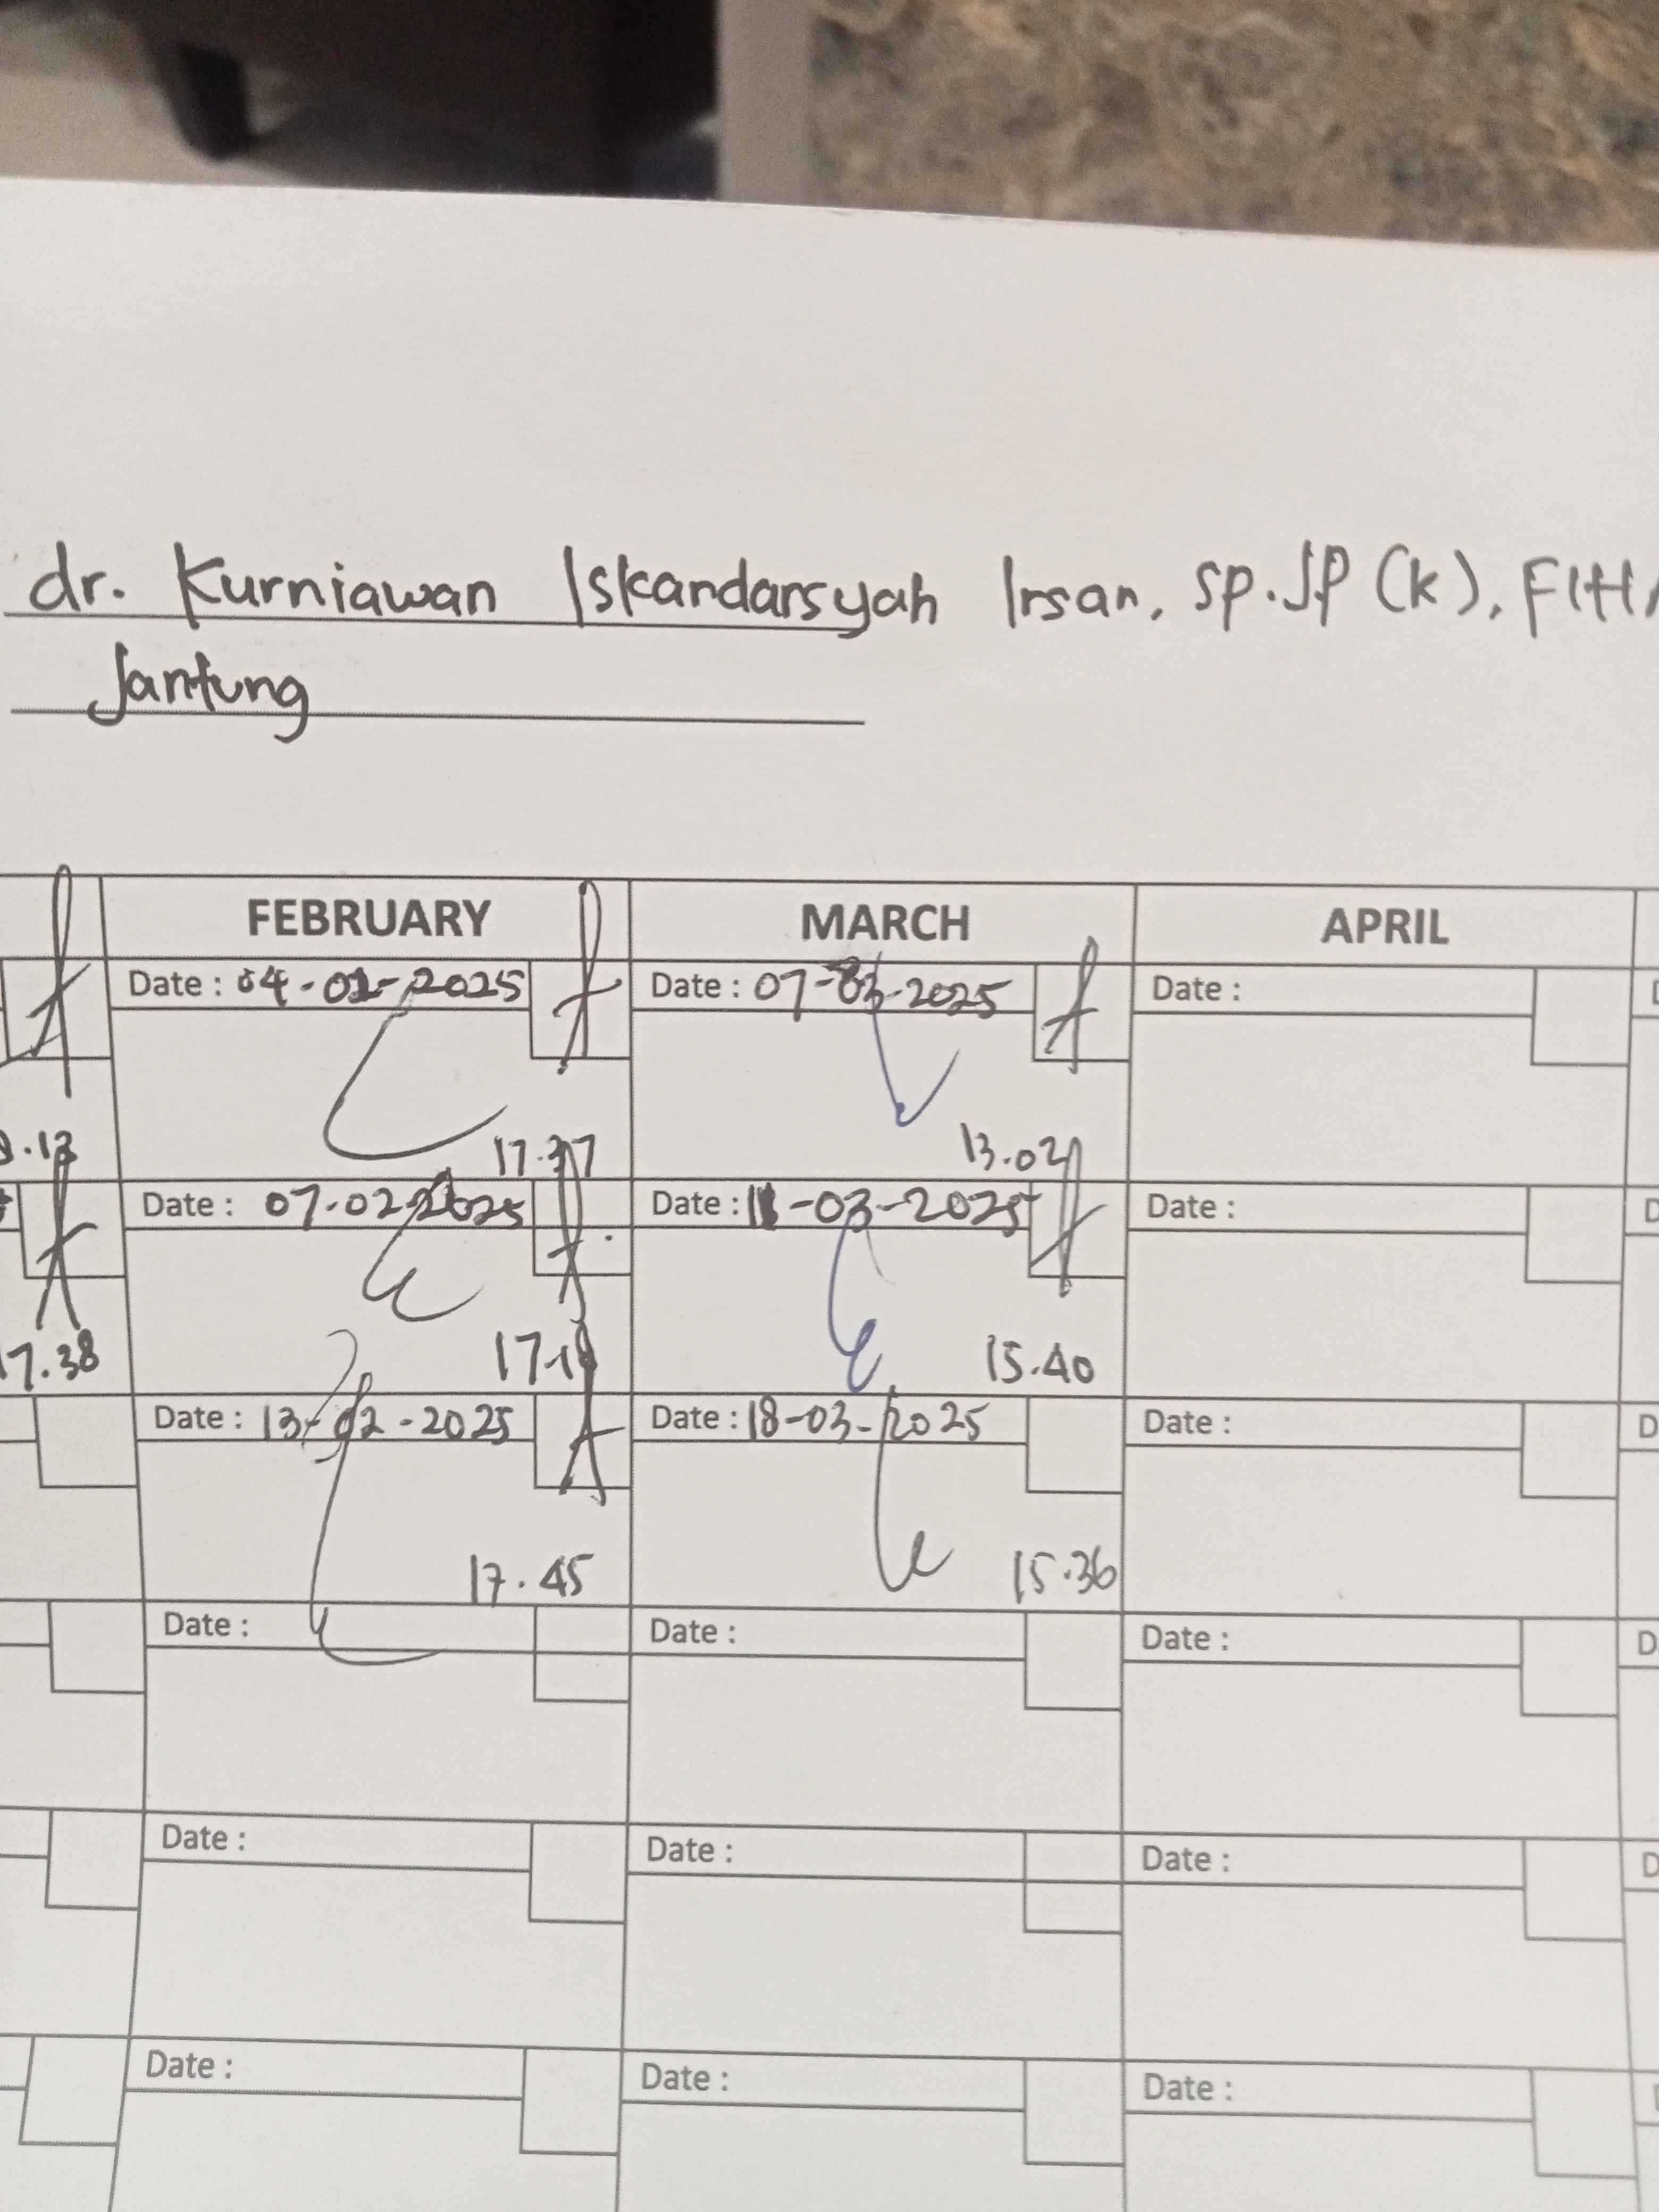 dr. Kurniawan Iskandarsyah Irsan, Sp.JP (K), FIHA
Jantung
FEBRUARY MARCH APRIL
Date : 04-02-2025 Date : 07-03-2025 Date :
17.37 13.02
Date : 07-02-2025 Date : 11-03-2025 Date :
17.38 15.40
Date : 13-02-2025 Date : 18-03-2025 Date :
17.45 15.36
Date : Date : Date :
Date : Date : Date :
Date : Date : Date :